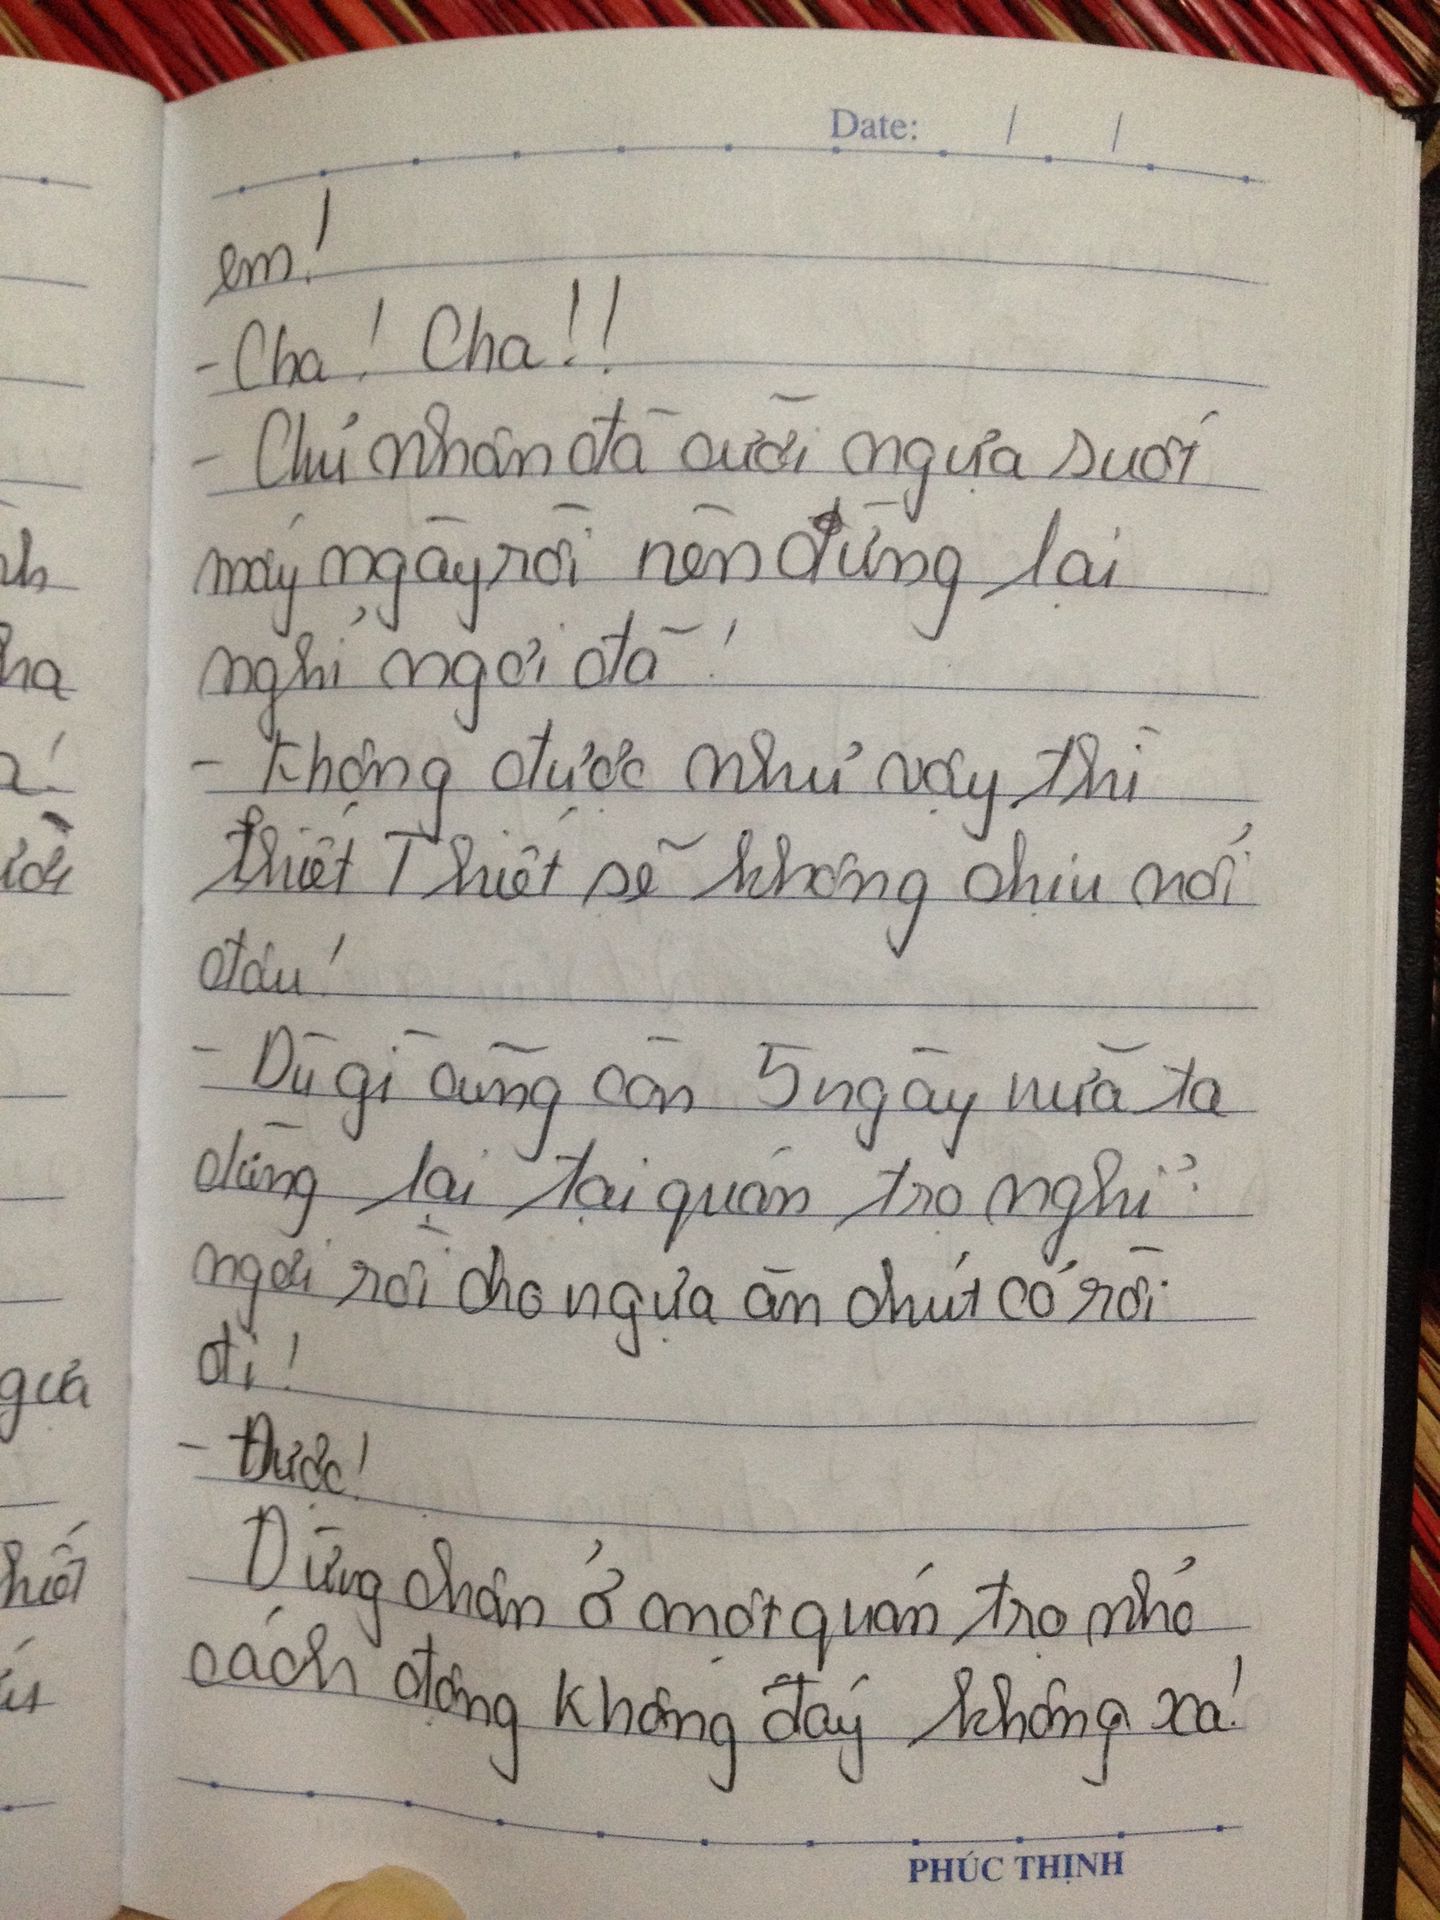 Date: / /
em!
- Cha! Cha!!
- Chủ nhân đã cưỡi ngựa suốt
mấy ngày rồi nên dừng lại
nghỉ ngơi đã!
- Không được như vậy thì
thiết Thiết sẽ không chịu nổi
đâu!
- Dù gì cũng còn 5 ngày nữa ta
dừng lại tại quán trọ nghỉ
ngơi rồi cho ngựa ăn chút cỏ rồi
đi!
- Được!
Dừng chân ở một quán trọ nhỏ
cách động không đáy không xa!
PHÚC THỊNH
nh
ha
a!
gựa